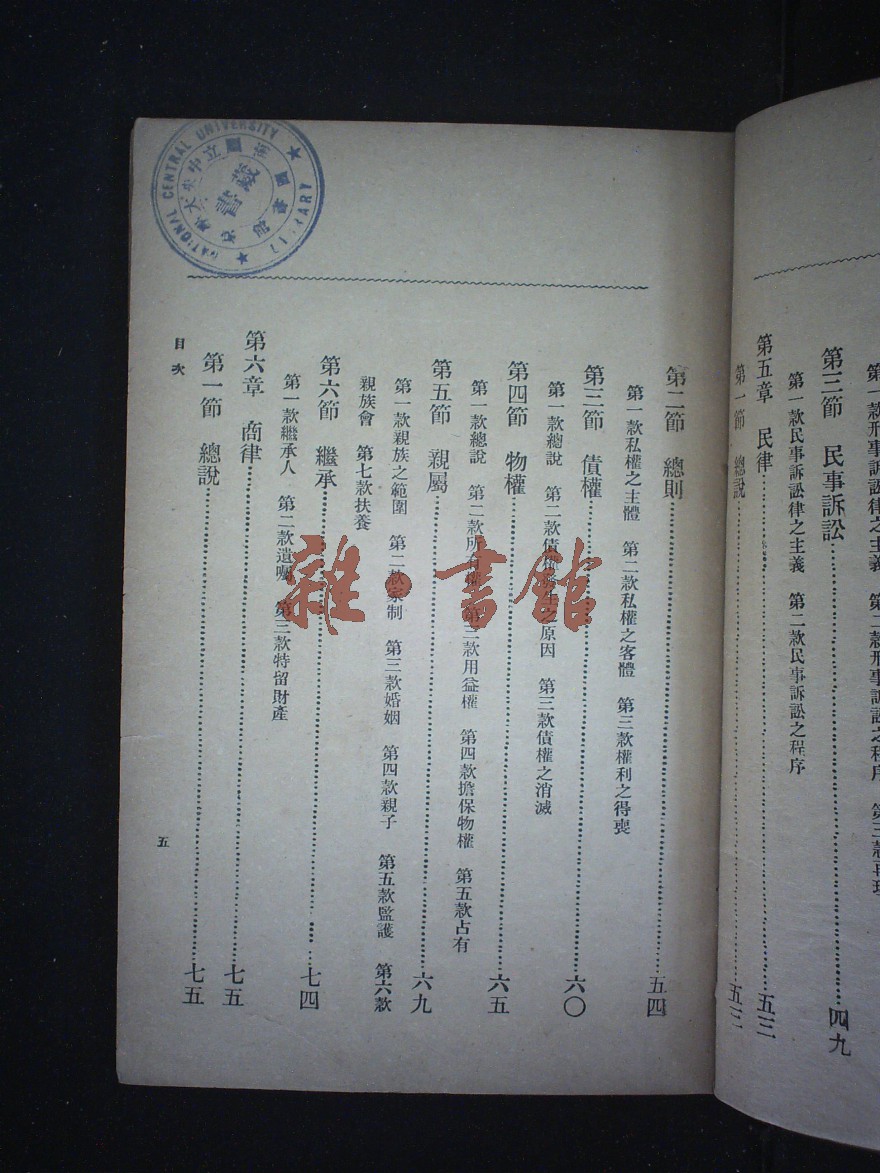 第一款刑事訴訟律之主義　第二款刑事訴訟之程序　第三款再理
第三節　民事訴訟……四九
第一款民事訴訟律之主義　第二款民事訴訟之程序
第五章　民律……五三
第一節　總說……五三
第二節　總則……五四
第一款私權之主體　第二款私權之客體　第三款權利之得喪
第三節　債權……六〇
第一款總說　第二款債權發生之原因　第三款債權之消滅
第四節　物權……六五
第一款總說　第二款所有權　第三款用益權　第四款擔保物權　第五款占有
第五節　親屬……六九
第一款親族之範圍　第二款家制　第三款婚姻　第四款親子　第五款監護　第六款
親族會　第七款扶養
第六節　繼承……七四
第一款繼承人　第二款遺囑　第三款特留財產
第六章　商律……七五
第一節　總說……七五
目次
五
NATIONAL CENTRAL UNIVERSITY
LIBRARY
藏書
雜·書館